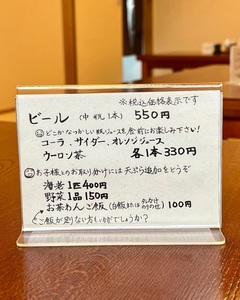 ※税込価格表示です
ビール (中瓶1本) 550円
どこかなつかしい瓶ジュースを食前にお楽しみ下さい!
コーラ、サイダー、オレンジジュース
ウーロン茶 各1本330円
お子様とのお取り分けには天ぷら追加をどうぞ
海老 1匹400円
野菜 1品150円
お茶わんご飯 (白飯または 100円
ご飯が足りない方もいかがでしょうか?